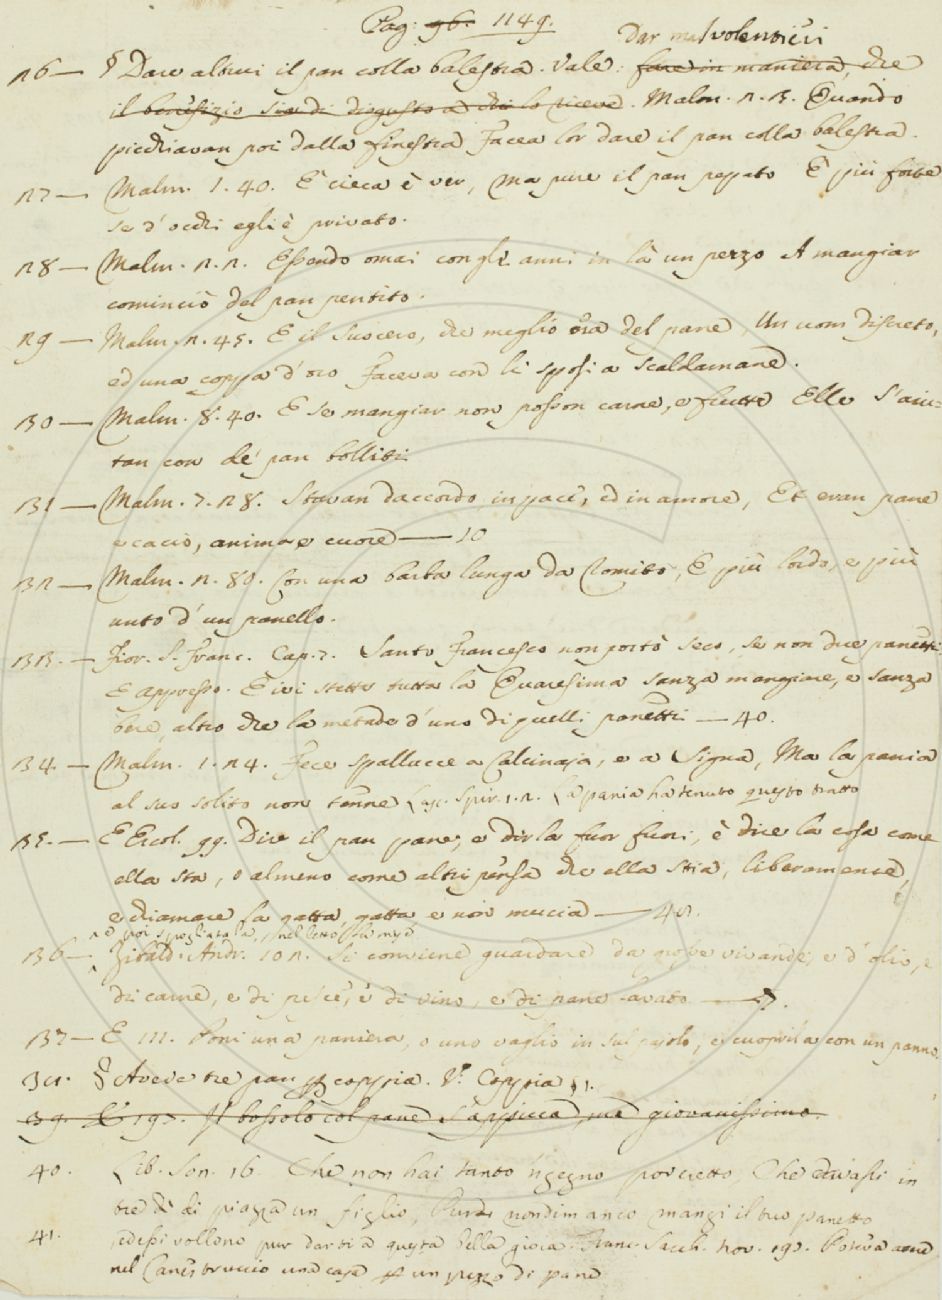 Pag: 96. 1149.
Dar malvolentieri
126 — § Dare altrui il pan colla balestra. Vale: fare in maniera, che
il benefizio sia di disgusto a chi lo riceve. Malm. 2. 3. Quando
picchiavan poi dalla finestra Facea lor dare il pan colla balestra.
127 — Malm. 1. 40. E' cieca è ver, ma pure il pan pepato E' più forte
se d'occhi egli è privato.
128 — Malm. 2. 2. Essendo omai con gli anni in là un pezzo A mangiar
cominciò del pan pentito.
129 — Malm. 2. 45. E il Suocero, che meglio era del pane, Un uom discreto,
ed una coppa d'oro Faceva con li sposi a Scaldamane.
130 — Malm. 8. 40. E se mangiar non posson carne, e frutte Elle s'aiu=
tan con de' pan bolliti
131 — Malm. 7. 28. Stavan d'accordo in pace, ed in amore, Et eran pane
e cacio, anima e cuore — 10
132 — Malm. 2. 80. Con una barba lunga da Romito, E più lordo, e più
unto d'un panello.
133. — Fior. S. Franc. Cap. 7. Santo Francesco non portò seco, se non due panetti
E appresso. E ivi stette tutta la Quaresima sanza mangiare, e sanza
bere, altro che la metade d'uno di quelli panetti — 40.
134. — Malm. 1. 24. Fece spallucce a Calcinaja, e a Signa, Ma la pania
al suo solito non tenne Lasc. Spir. 1. 2. La pania ha tenuto questo tratto
135. — E Ercol. 99. Dire il pan pane, e dirla fuor fuori, è dire la cosa come
ella sta, o almeno come altri pensa che ella stia, liberamente,
e chiamare la gatta, gatta e non mucia —
136 — Zibald. Andr. 102. Si conviene guardare da grosse vivande, e d'olio, e
di carne, e di pesce, e di vino, e di pane lavato —
137 — E 111. Poni una paniera, o uno vaglio in sul pajolo, e cuoprila con un panno.
§ Avere tre pan p coppia. V. Coppia § 1.
39. E 197. Il bossolo col pane s'appicca, ma giovanissimo.
40. Lib. Son. 16. Che non hai tanto 'ngegno porcetto, Che in
tre dì di piazza un figlio, nondimanco mangi il tuo panetto
41. vollono pur darti a questa bella gioia. Franc. Sacch. nov. 192. Poteva avere
nel Canestruccio una casa p un pezzo di pane